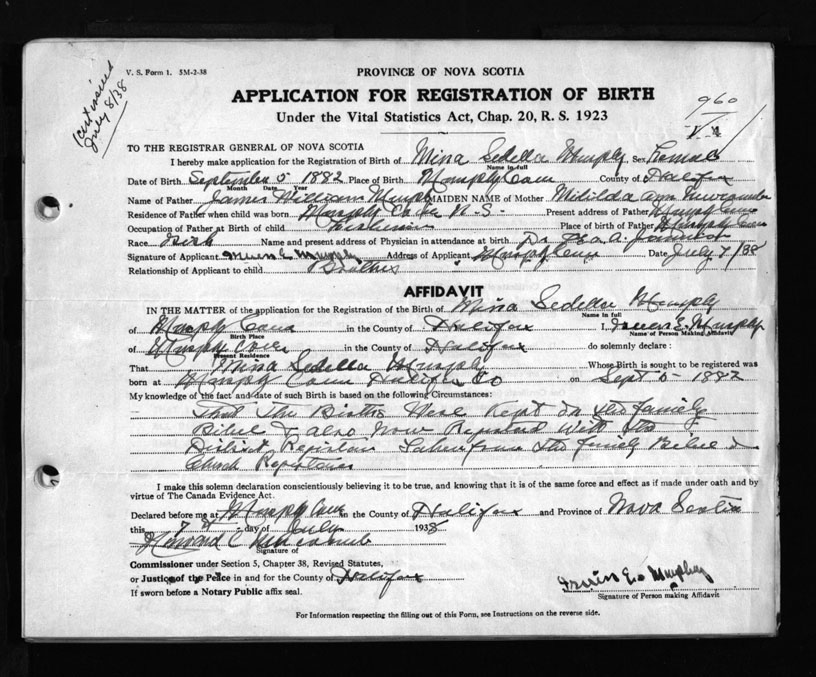 V. S. Form 1. 5M-2-38
July 8/38
PROVINCE OF NOVA SCOTIA
APPLICATION FOR REGISTRATION OF BIRTH
Under the Vital Statistics Act, Chap. 20, R. S. 1923
960
TO THE REGISTRAR GENERAL OF NOVA SCOTIA
I hereby make application for the Registration of Birth of Mina Sedella Murphy Sex Female
Name in full
Date of Birth September 5 1882 Place of Birth Murphy Cove County of Halifax
Month Date Year
Name of Father James William Murphy MAIDEN NAME of Mother Matilda Ann
Residence of Father when child was born Murphy Cove N.S. Present address of Father Murphy Cove
Occupation of Father at Birth of child Fisherman Place of birth of Father Murphy Cove
Race Name and present address of Physician in attendance at birth Dr
Signature of Applicant E. Murphy Address of Applicant Murphy Cove Date July 7/38
Relationship of Applicant to child Brother
AFFIDAVIT
IN THE MATTER of the application for the Registration of the Birth of Mina Sedella Murphy
Name in full
of Murphy Cove in the County of Halifax I, E. Murphy
Birth Place Name of Person Making Affidavit
of Murphy Cove in the County of Halifax do solemnly declare :
Present Residence
That Mina Sedella Murphy Whose Birth is sought to be registered was
born at Murphy Cove Halifax Co on Sept 5 - 1882
My knowledge of the fact and date of such Birth is based on the following Circumstances:
That The Births Were Kept in the family
Bible & also Now Registered With the
District Registrar Taken from the family Bible &
Church
I make this solemn declaration conscientiously believing it to be true, and knowing that it is of the same force and effect as if made under oath and by
virtue of The Canada Evidence Act.
Declared before me at Murphy Cove in the County of Halifax and Province of Nova Scotia
this 7 day of July 1938
Howard C
Signature of
Commissioner under Section 5, Chapter 38, Revised Statutes,
or Justice of the Peace in and for the County of Halifax
If sworn before a Notary Public affix seal.
E. Murphy
Signature of Person making Affidavit
For Information respecting the filling out of this Form, see Instructions on the reverse side.